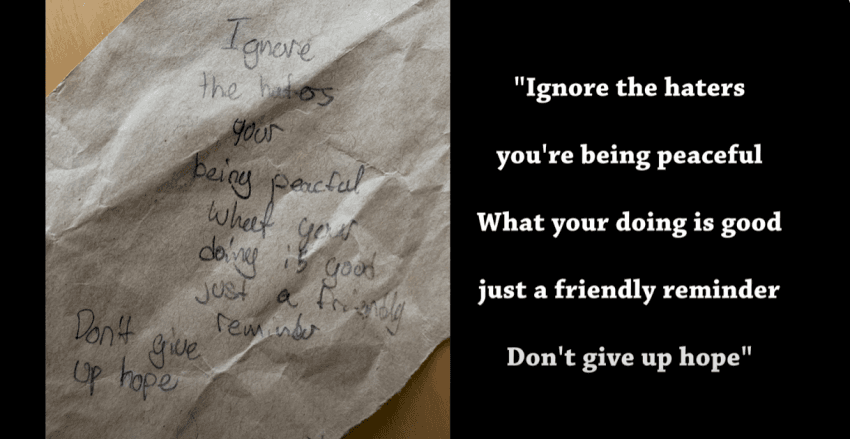 Ignore
the hatos
your
being peacful
What your
doing is good
just a friendly
reminder
Don't give
up hope
"Ignore the haters
you're being peaceful
What your doing is good
just a friendly reminder
Don't give up hope"